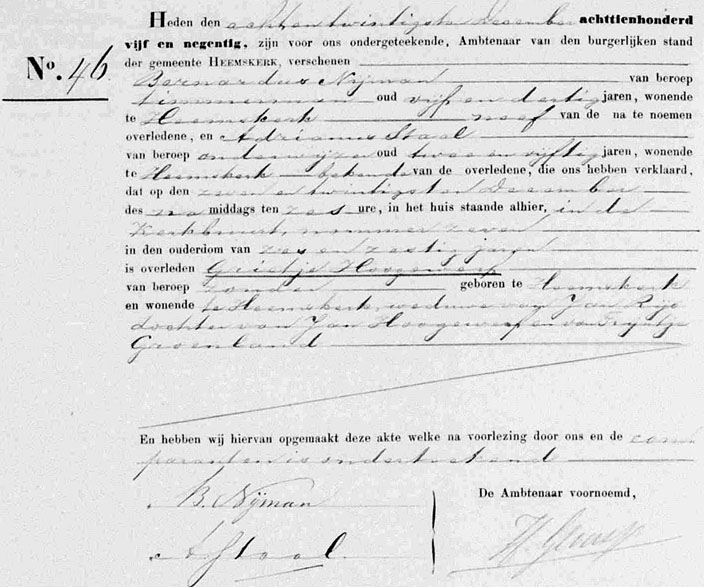 Heden den achtentwintigste December achttienhonderd
vijf en negentig, zijn voor ons ondergeteekende, Ambtenaar van den burgerlijken stand
der gemeente HEEMSKERK, verschenen
No. 46
Bernardus Nijman van beroep
timmerman oud vijf en dertig jaren, wonende
te Heemskerk neef van de na te noemen
overledene, en Adrianus Staal
van beroep onderwijzer oud twee en vijftig jaren, wonende
te Heemskerk bekende van de overledene, die ons hebben verklaard,
dat op den zeven en twintigsten December
des na middags ten zes ure, in het huis staande alhier, in de
Kerkbuurt, nummer zeven
in den ouderdom van zes en zestig jaren
is overleden Grietje Hoogewerf
van beroep zonder geboren te Heemskerk
en wonende te Heemskerk, weduwe van Jan
dochter van Jan Hoogewerf en van Trijntje
Groenland
En hebben wij hiervan opgemaakt deze akte welke na voorlezing door ons en de com
paranten is onderteekend
B. Nijman
De Ambtenaar voornoemd,
A Staal